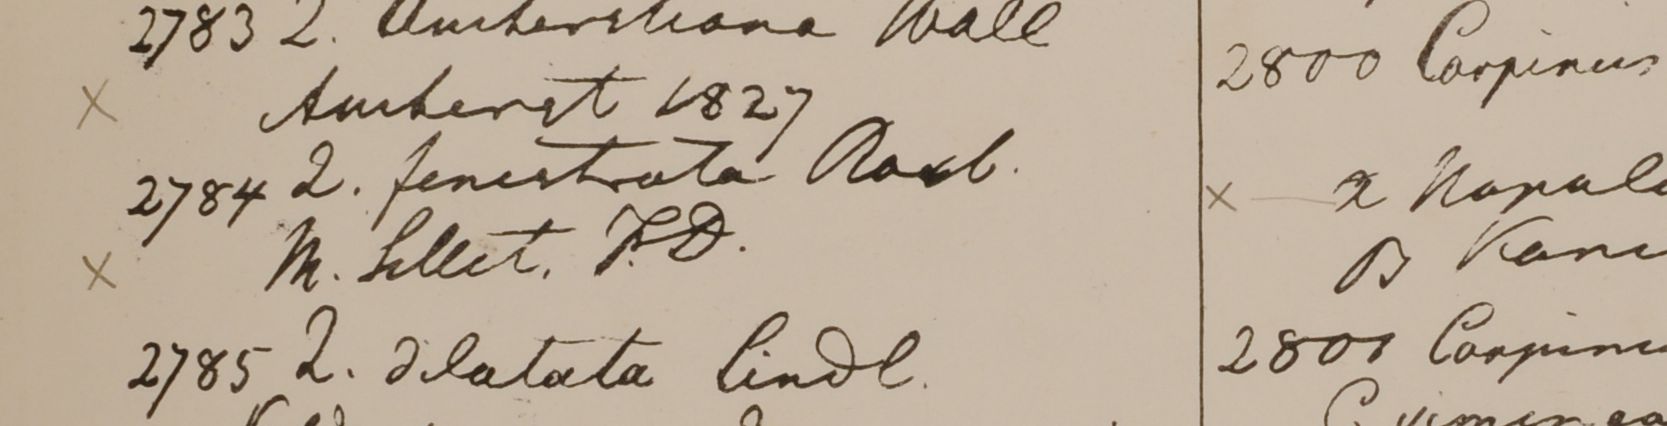 2783 Q. Amherstiana Wall
Amherst 1827
2784 Q. fenestrata Roxb.
M. Sillet. F.D.
2785 Q. dilatata Lindl.
2800 Carpinus
x α Napal
β Kam
2801 Carpinu
C. vimin